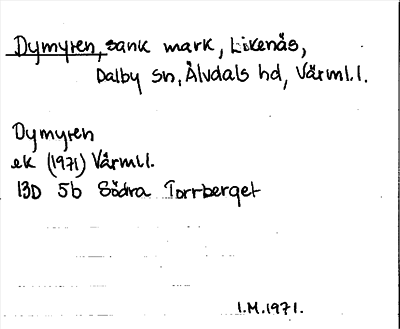 Dymyren, sank mark, Likenäs,
Dalby sn, Älvdals hd, Värml.l.
Dymyren
ek (1971) Värml.l.
13D 5b Södra Torrberget
I.M.1971.